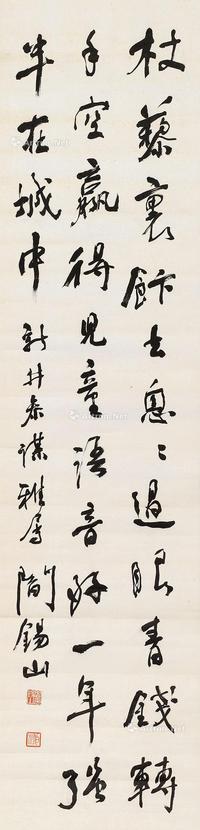 杖藜裹飰去怱〻過眼青錢轉
手空贏得兒童語音好一年強
半在城中 新井參謀雅屬 閻錫山